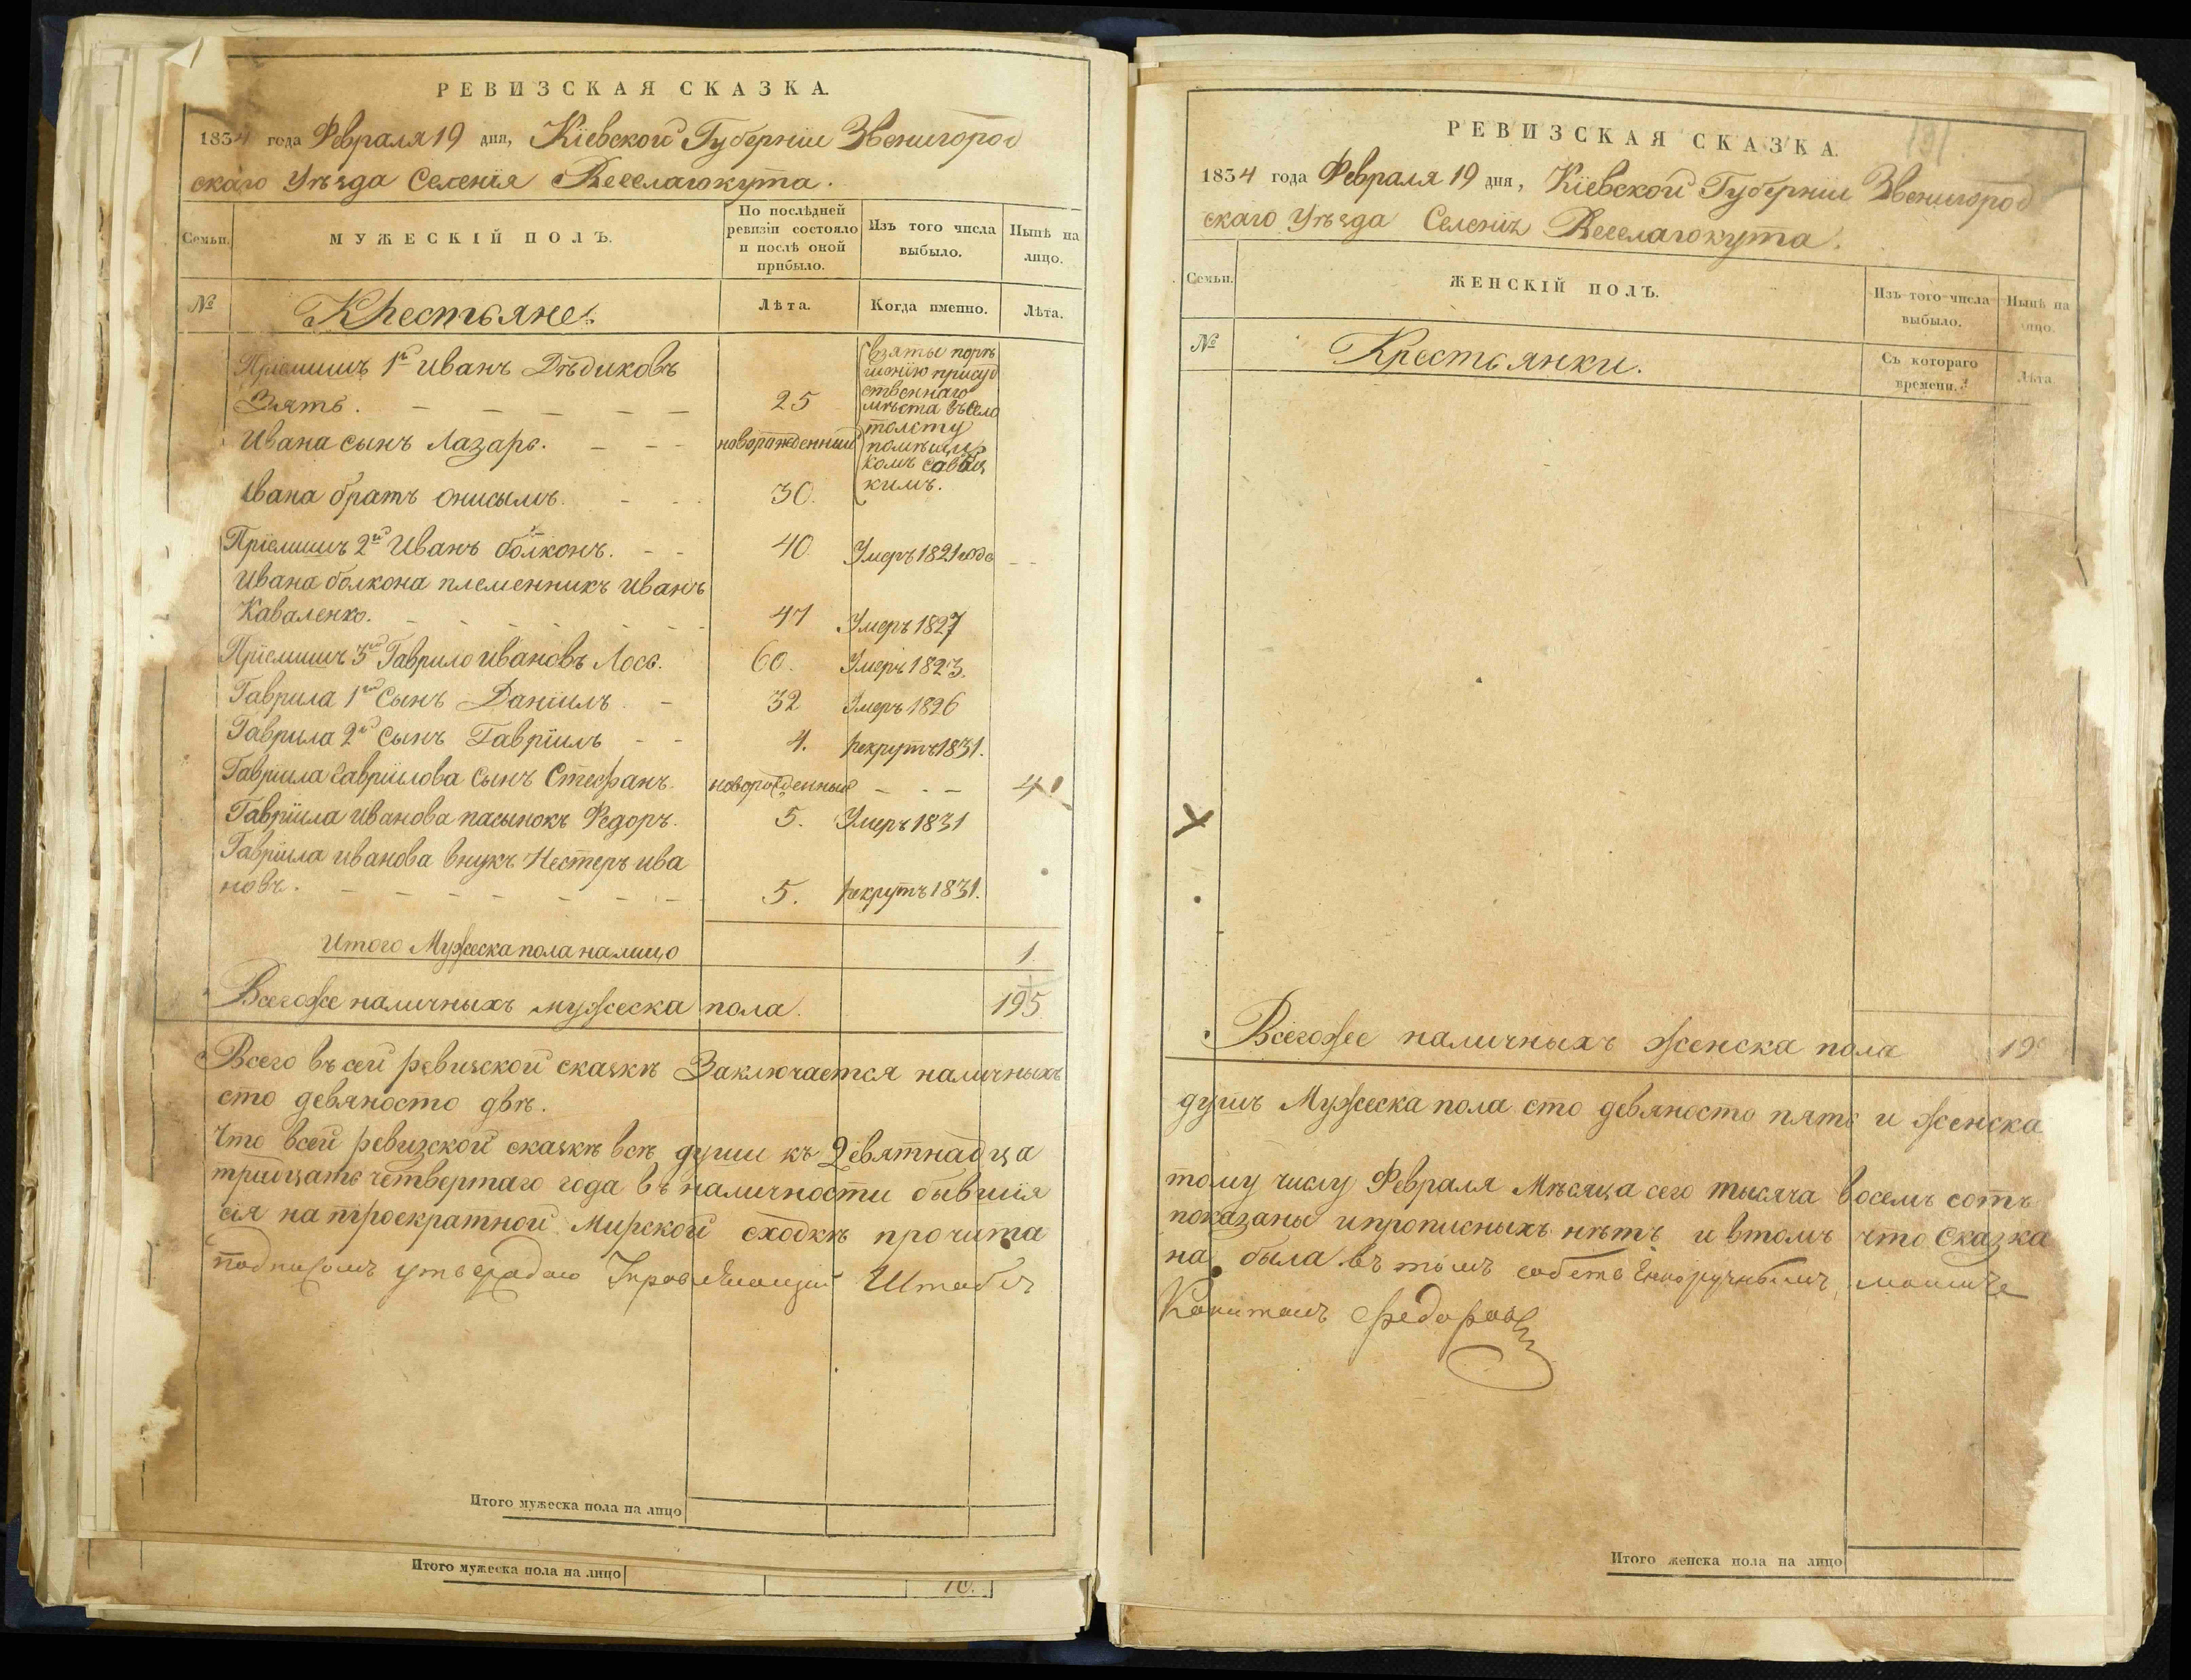 РЕВИЗСКАЯ СКАЗКА.
1834 года Февраля 19 дня, Кіевской Губерніи Звенигород
скаго Уѣзда Селенія Веселагокута.
Семьи.
МУЖЕСКІЙ ПОЛЪ.
По послѣдней
ревизіи состояло
и послѣ оной
прибыло.
Изъ того числа
выбыло.
Нынѣ на
лицо.
№
Крестьяне.
Лѣта.
Когда именно.
Лѣта.
Пріемишъ 1й Иванъ Дѣдиковъ
Зять. 25
Ивана сынъ Лазарь. новорожденный
Ивана братъ Онисымъ. 30.
взяты порѣ
шенію присуд
ственнаго
мѣста въ село
толсту
помѣщи
комъ
кимъ.
Пріемишъ 2й Иванъ болконъ. 40 Умеръ 1821 года
Ивана болкона племенникъ Иванъ
Каваленко. 47 Умеръ 1827
Пріемишъ 3й Гаврило Ивановъ Лось. 60. Умеръ 1823.
Гаврила 1й Сынъ Даніилъ 32 Умеръ 1826
Гаврила 2й Сынъ Гавріилъ 4. рекрутъ 1831.
Гавріила Гавріилова Сынъ Стефанъ. новорожденный 4
Гавріила Иванова пасынокъ Федоръ. 5. Умеръ 1831
Гавріила Иванова внукъ Нестеръ ива
новъ. 5. рекрутъ 1831.
Итого Мужеска пола налицо 1.
Всегоже наличныхъ мужеска пола. 195.
Всего въ сей ревизской сказкѣ Заключается наличныхъ
сто девяносто двѣ.
Что всей ревизской сказкѣ всѣ души къ Девятнадца
тридцать четвертаго года въ наличности бывшія
сія на троекратной Мирской сходкѣ прочита
подписомъ утверждаю Управляющій Штабсъ
Итого мужеска пола на лицо
Итого мужеска пола на лицо
70.
РЕВИЗСКАЯ СКАЗКА.
191
1834 года Февраля 19 дня, Кіевской Губерніи Звенигород
скаго Уѣзда Селеніѣ Веселагокута.
Семьи.
ЖЕНСКІЙ ПОЛЪ.
Изъ того числа
выбыло.
Нынѣ на
лицо.
№
Крестьянки.
Съ котораго
времени.
Лѣта.
Всегоже наличныхъ женска пола 19
душъ Мужеска пола сто девяносто пять и женска
тому числу Февраля Мѣсяца сего тысяча восемь сотъ
показаны ипрописныхъ нѣтъ и втомъ что Сказка
на была въ томъ собственноручнымъ моимъ
Капитанъ Федоровъ
Итого женска пола на лицо